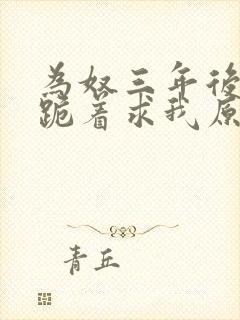 為奴三年後
跪着求我原
青丘